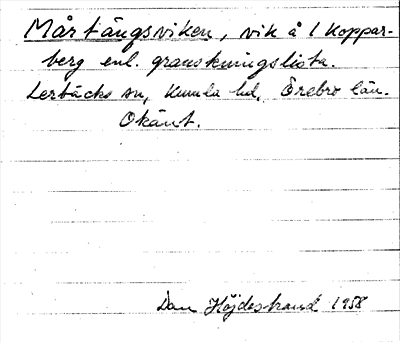 Mårtängsviken, vik å 1 Koppar-
berg enl. granskningslista.
Lerbäcks sn, Kumla hd, Örebro län.
Okänt.
Dan Höjdestrand 1958